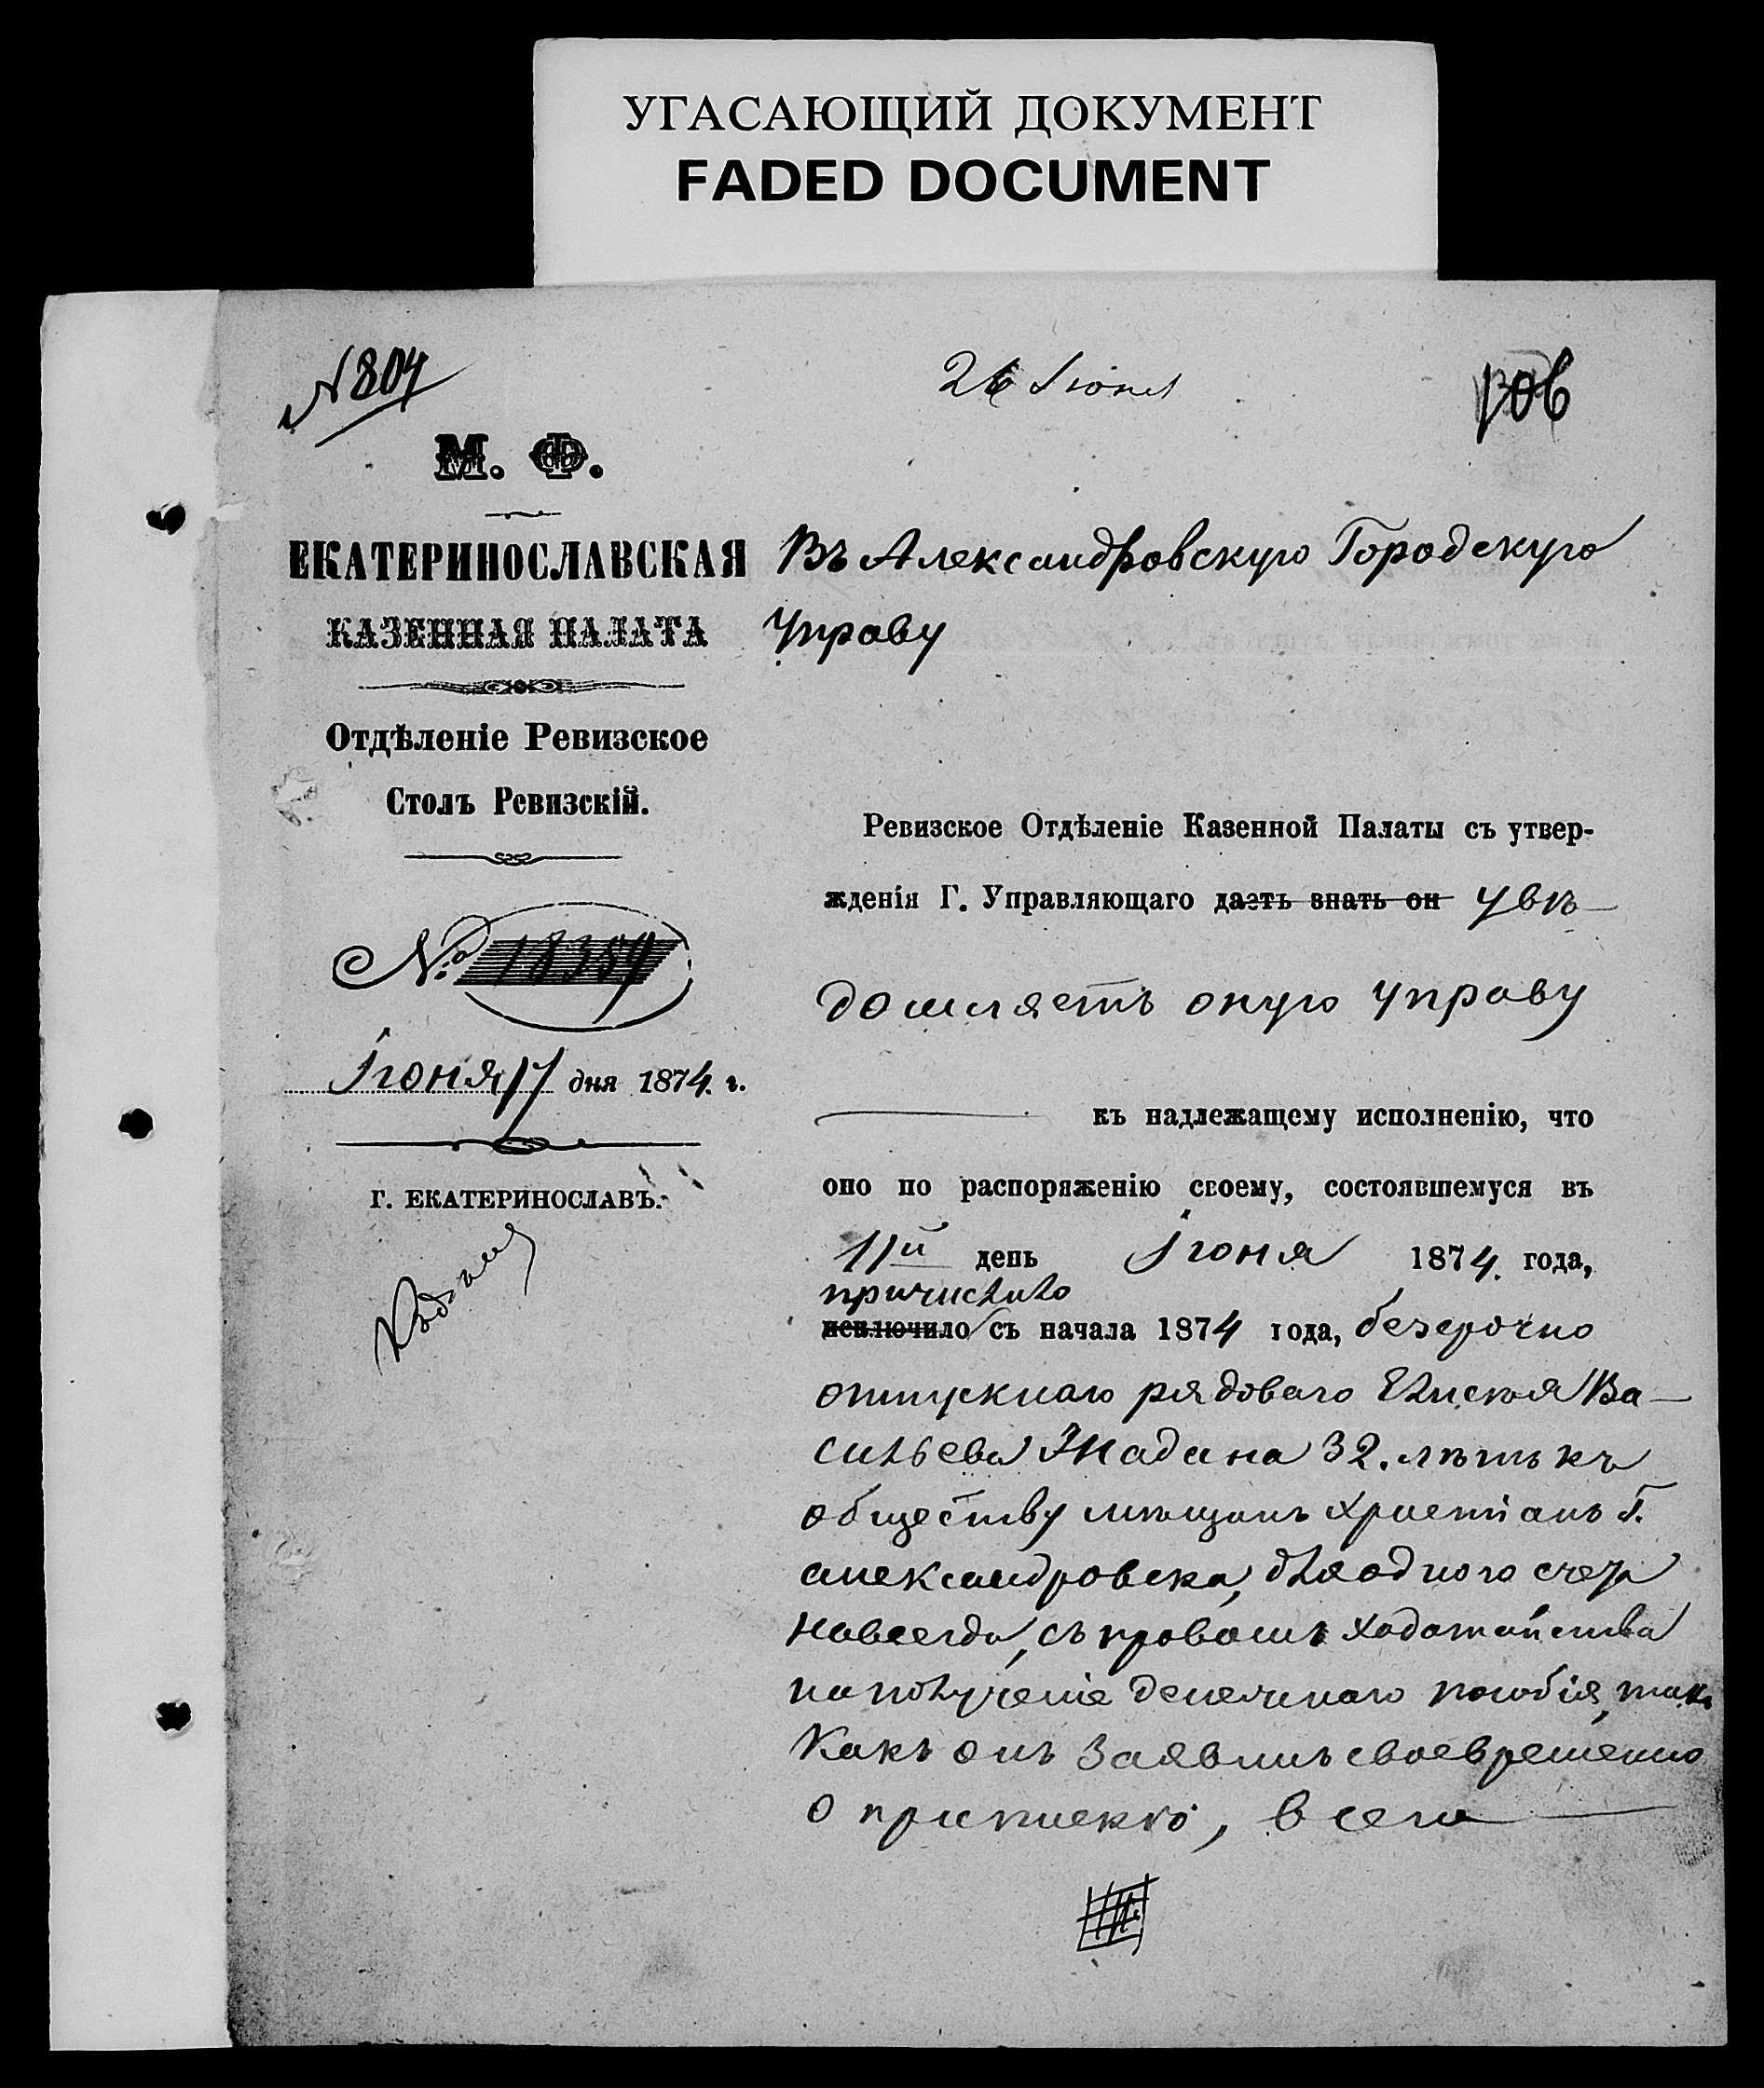 УГАСАЮЩИЙ ДОКУМЕНТ
FADED DOCUMENT
№ 804
26 Іюня
106
М. Ф.
ЕКАТЕРИНОСЛАВСКАЯ
КАЗЕННАЯ ПАЛАТА
Отдѣленіе Ревизское
Столъ Ревизскій.
№ 18384
Іюня 17 дня 1874. г.
Г. ЕКАТЕРИНОСЛАВЪ.
Въ Александровскую Городскую
Управу
Ревизское Отдѣленіе Казенной Палаты съ утвер-
жденія Г. Управляющаго даетъ знать он увѣ-
домляетъ оную управу
къ надлежащему исполненію, что
оно по распоряженію своему, состоявшемуся въ
11й день Іюня 1874. года,
причислило
исключило съ начала 1874 года, безсрочно
отпускнаго рядоваго Ва-
сильева Жадана 32. лѣтъ къ
обществу мѣщанъ христіанъ г.
александровска, для одного счета
навсегда, съ правомъ ходатайства
на полученіе денежнаго пособія, такъ
какъ онъ заявилъ своевременно
о припискѣ, всего